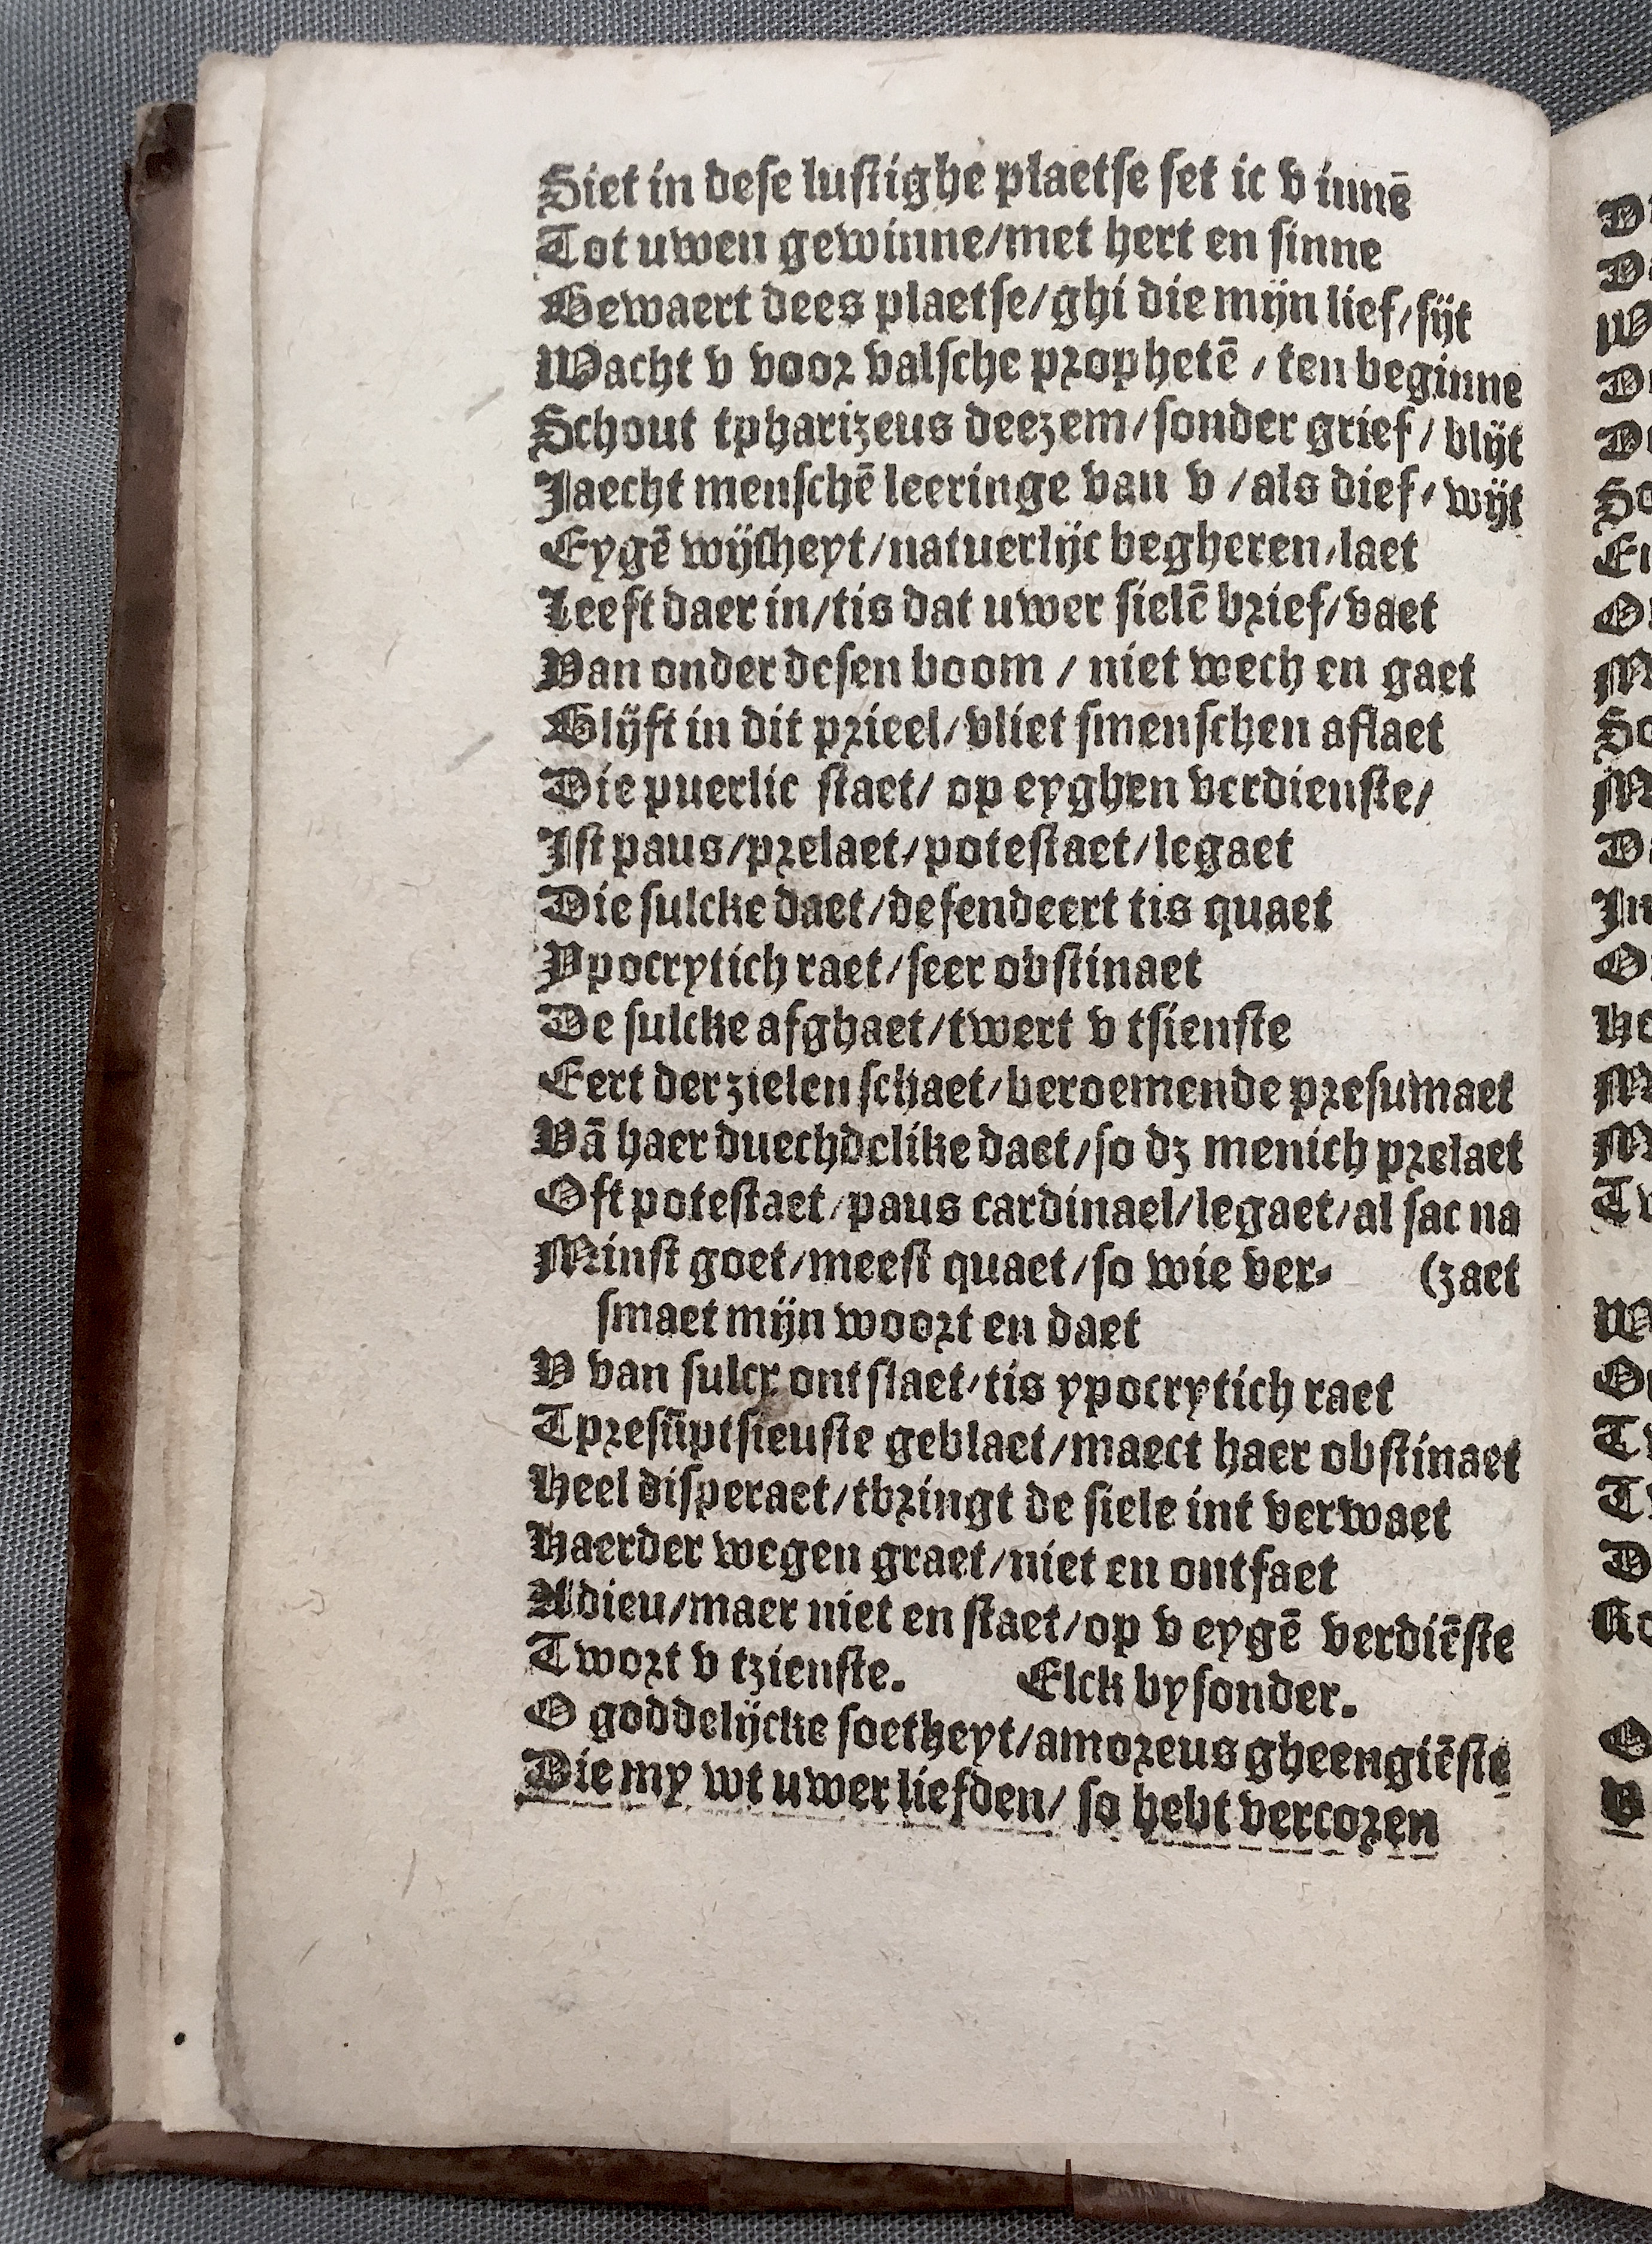 Siet in dese lustighe plaetse set ic v innē
Tot uwen gewinne/met hert en sinne
Bewaert dees plaetse/ghi die mijn lief/sijt
Wacht v voor valsche prophetē / ten beginne
Schout tpharizeus deezem/sonder grief/ blijt
Jaecht menschē leeringe van v /als dief/ wijt
Eygē wijsheyt/natuerlijc begheren/laet
Leeft daer in/tis dat uwer sielē brief/vaet
Van onder desen boom / niet wech en gaet
Blijft in dit prieel/vliet smenschen aflaet
Die puerlic staet/ op eyghen verdienste/
Ist paus/prelaet/potestaet/legaet
Die sulcke daet/defendeert tis quaet
Ypocrytich raet/seer obstinaet
De sulcke afghaet/twert v tsienste
Eert der zielen schaet/beroemende presumaet
Vā haer duechdelike daet/so dz menich prelaet
Oft potestaet/paus cardinael/legaet/al sac na
Minst goet/meest quaet/so wie ver⸗ (zaet
smaet mijn woort en daet
V van sulcx ontslaet/tis ypocrytich raet
Tpresūptsieuste geblaet/maect haer obstinaet
Heel disperaet/tbringt de siele int verwaet
Haerder wegen graet/niet en ontfaet
Adieu/maer niet en staet/op v eygē verdiēste
Twort v tzienste. Elck by sonder.
O goddelijcke soetheyt/amoreus gheengiēste
Die my wt uwer liefden/ so hebt vercoren